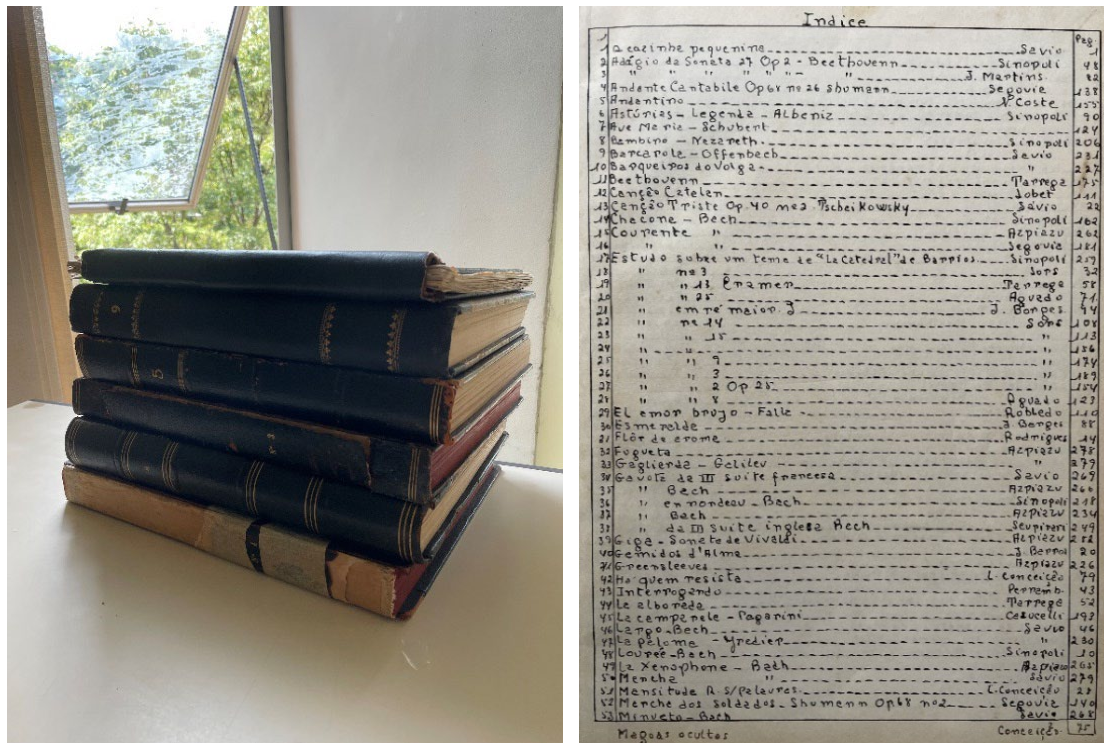 9
5
Nº 3
Indice
Pag.
1 A cazinha pequenina Savio 1
2 Adágio da Sonata 27 Op 2 - Beethovenn Sinopoli 48
3 " " " " " " J. Martins 82
4 Andante Cantabile Op 68 nº 26 Shumann Segovia 138
5 Andantino N. Coste 155
6 Astúrias - Legenda - Albeniz Sinopoli 90
7 Ave Maria - Schubert 124
8 Bambino - Nazareth. Sinopoli 206
9 Barcarole - Offenbach Savio 231
10 Barqueiros do Volga - " 227
11 Beethovenn Tarrega 175
12 Canção Catelan Lobet 111
13 Canção Triste Op. 40 nº 2 Tschaikowsky Savio 22
14 Chacone - Bach Sinopoli 162
15 Courente " Azpiazu 262
16 " " Segovia 181
17 Estudo sobre um tema de "La Catedral" de Barrios Sinopoli 259
18 " nº 3 Sors 32
19 " " 13 Cramer Tarrega 58
20 " " 25 Aguado 71
21 " em ré maior J. Borges 94
22 " nº 14 Sors 108
23 " " 15 " 113
24 " " 156
25 " " 9 " 174
26 " " 3 " 189
27 " " 2 Op 25 " 154
28 " " 8 Aguado 123
29 El amor brujo - Falla Robledo 110
30 Esmeralda J. Borges 88
31 Flôr de aroma Rodrigues 14
32 Fogueta Azpiazu 278
33 Gaglierda - Galilev " 279
34 Gavota da III suite francesa Savio 269
35 " Bach Azpiazu 266
36 " en rondeau - Bach Sinopoli 218
37 " Bach Azpiazu 234
38 " da III suite inglesa Bach Scupinari 249
39 Giga - Sonata de Vivaldi Azpiazu 252
40 Gemidos d'Alma J. Barros 20
41 Greensleeves Azpiazu 226
42 Ha quem resista L. Conceição 79
43 Interrogando Pernamb. 43
44 La alborada Tarrega 52
45 La campanela - Paganini Carucelli 193
46 Largo - Bach Savio 46
47 La paloma - Yradier " 230
48 Lourée - Bach Sinopoli 10
49 La Xenophone - Bach Azpiazu 265
50 Mancha " Savio 279
51 Mansitude R. S/Palavras L. Conceição 28
52 Marcha dos Soldados - Shumann Op 68 nº 2 Segovia 140
53 Minueto - Bach Savio 268
Magoas ocultas Conceição 75